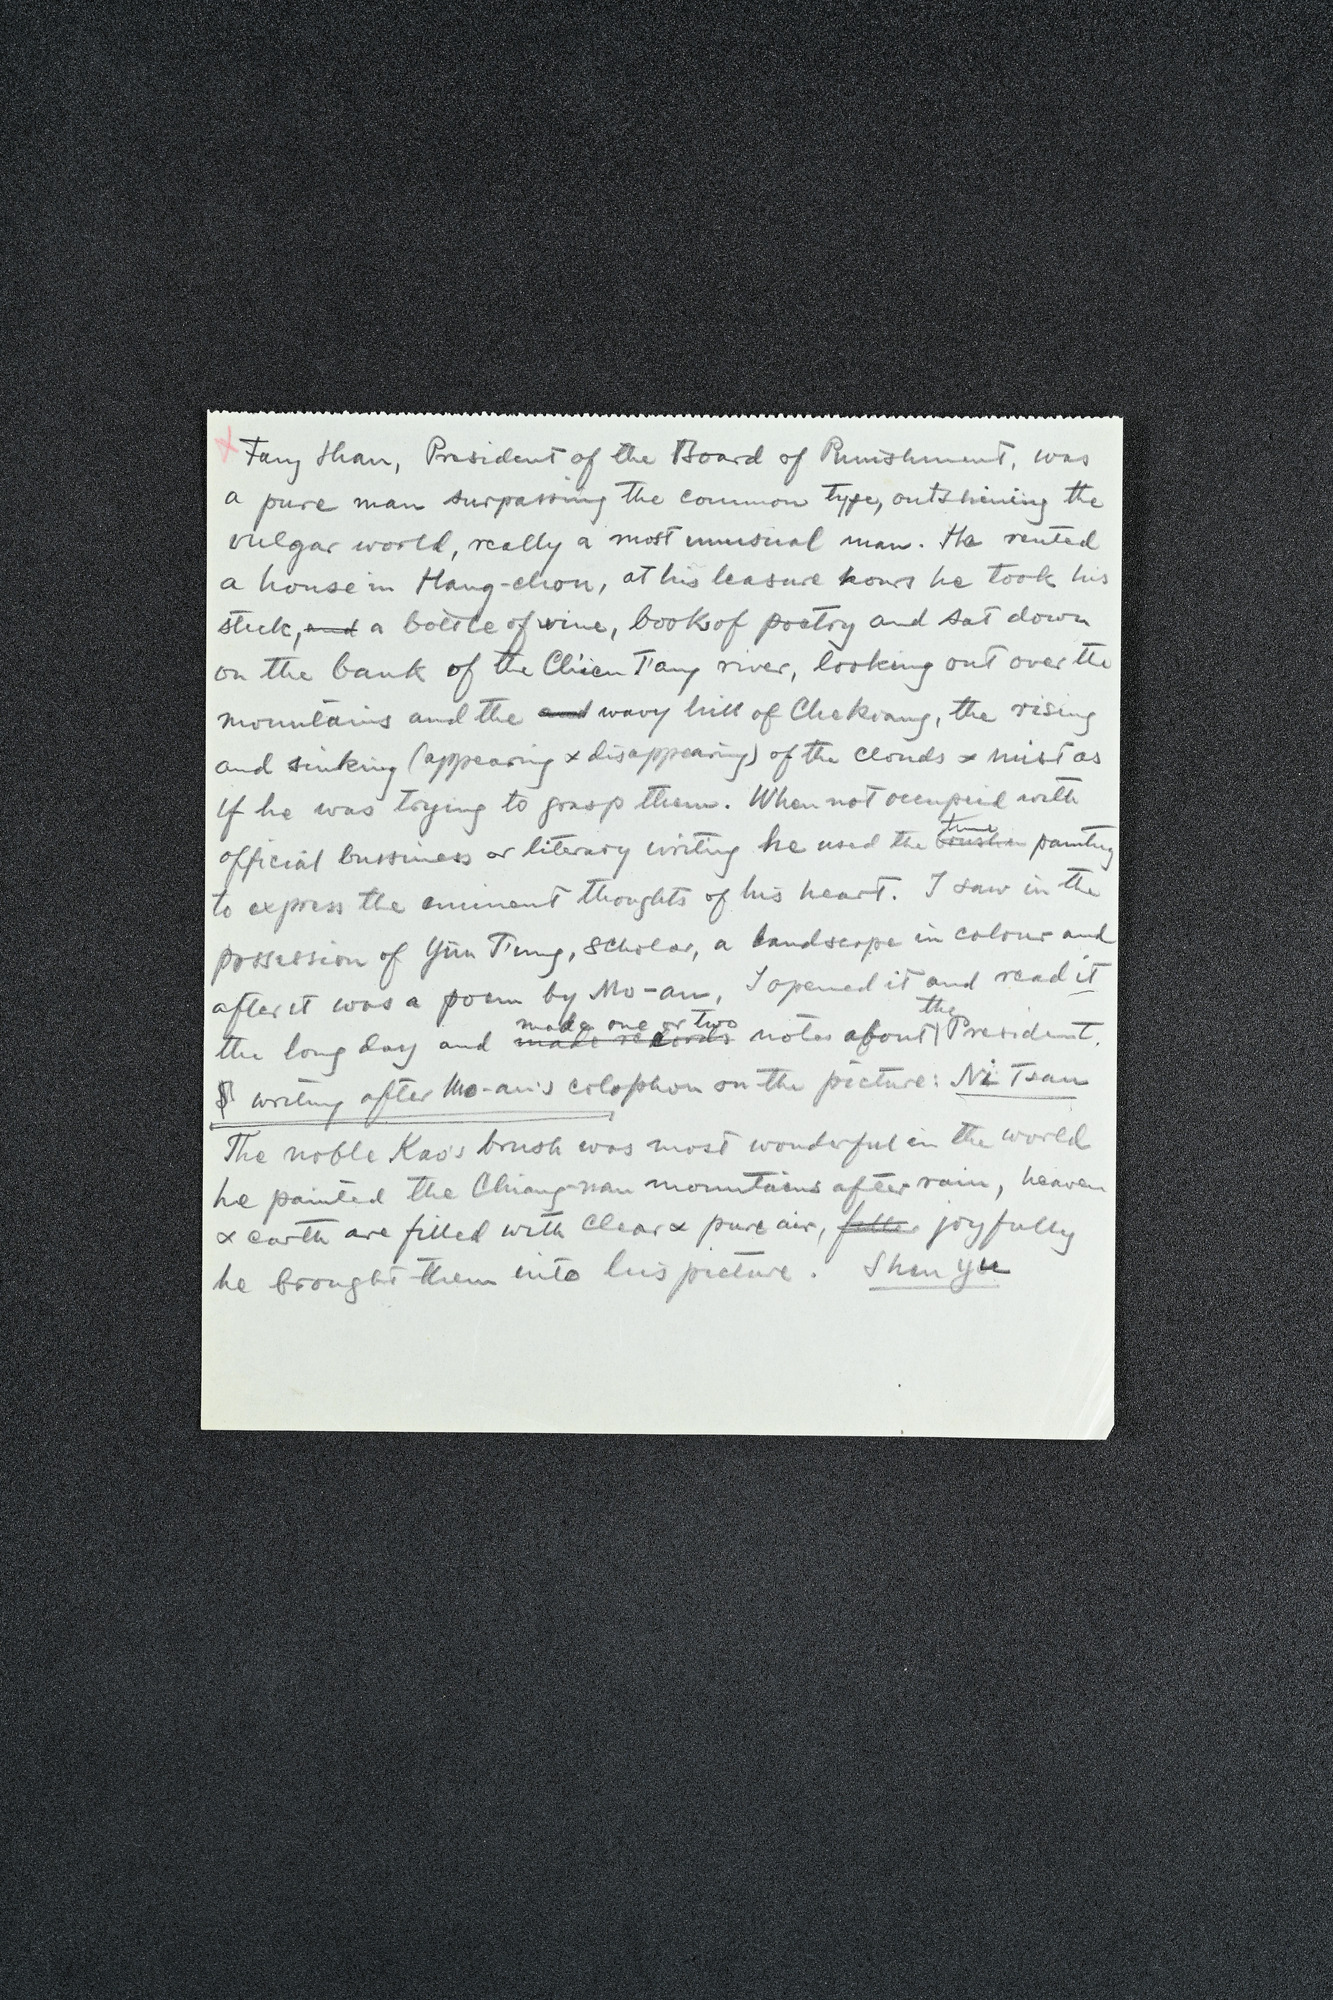 x Fang Shan, President of the Board of Punishment, was
a pure man surpassing the common type, outshining the
vulgar world, really a most unusual man. He rented
a house in Hang-chou, at his leasure hours he took his
stick, and a bottle of wine, books of poetry and sat down
on the bank of the Ch'ien T'ang river, looking out over the
mountains and the and wavy hill of Chekiang, the rising
and sinking (appearing & disappearing) of the clouds & mist as
if he was trying to grasp them. When not occupied with
official bussiness or literary writing he used the time painting
to express the eminent thoughts of his heart. I saw in the
possession of Yün T'ung, scholar, a landscape in colour and
after it was a poem by Mo-an, I opened it and read it
the long day and made records made one or two notes about the President.
writing after Mo-an's colophon on the picture: Ni Tsan
The noble Kao's brush was most wonderful in the world
he painted the Chiang-nan mountains after rain, heaven
& earth are filled with clear & pure air, joyfully
he brought them into his picture. Shen Yü